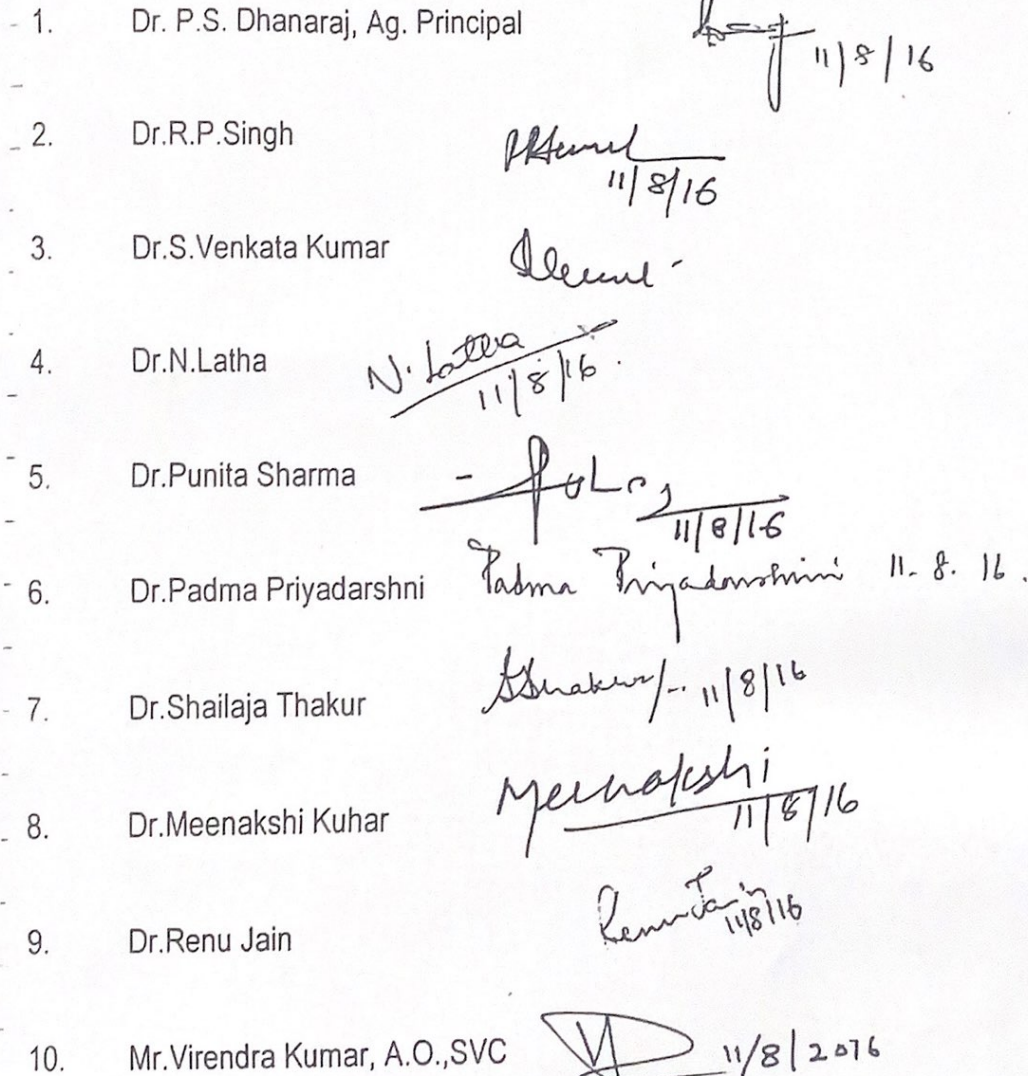 1. Dr. P.S. Dhanaraj, Ag. Principal 11/8/16
2. Dr.R.P.Singh
11/8/16
3. Dr.S.Venkata Kumar
4. Dr.N.Latha N. Latha
11/8/16.
5. Dr.Punita Sharma
11/8/16
6. Dr.Padma Priyadarshni Padma Priyadarshini 11. 8. 16.
7. Dr.Shailaja Thakur SThakur/-. 11/8/16
8. Dr.Meenakshi Kuhar Meenakshi
11/8/16
9. Dr.Renu Jain Renu Jain
11/8/16
10. Mr.Virendra Kumar, A.O.,SVC 11/8/2016